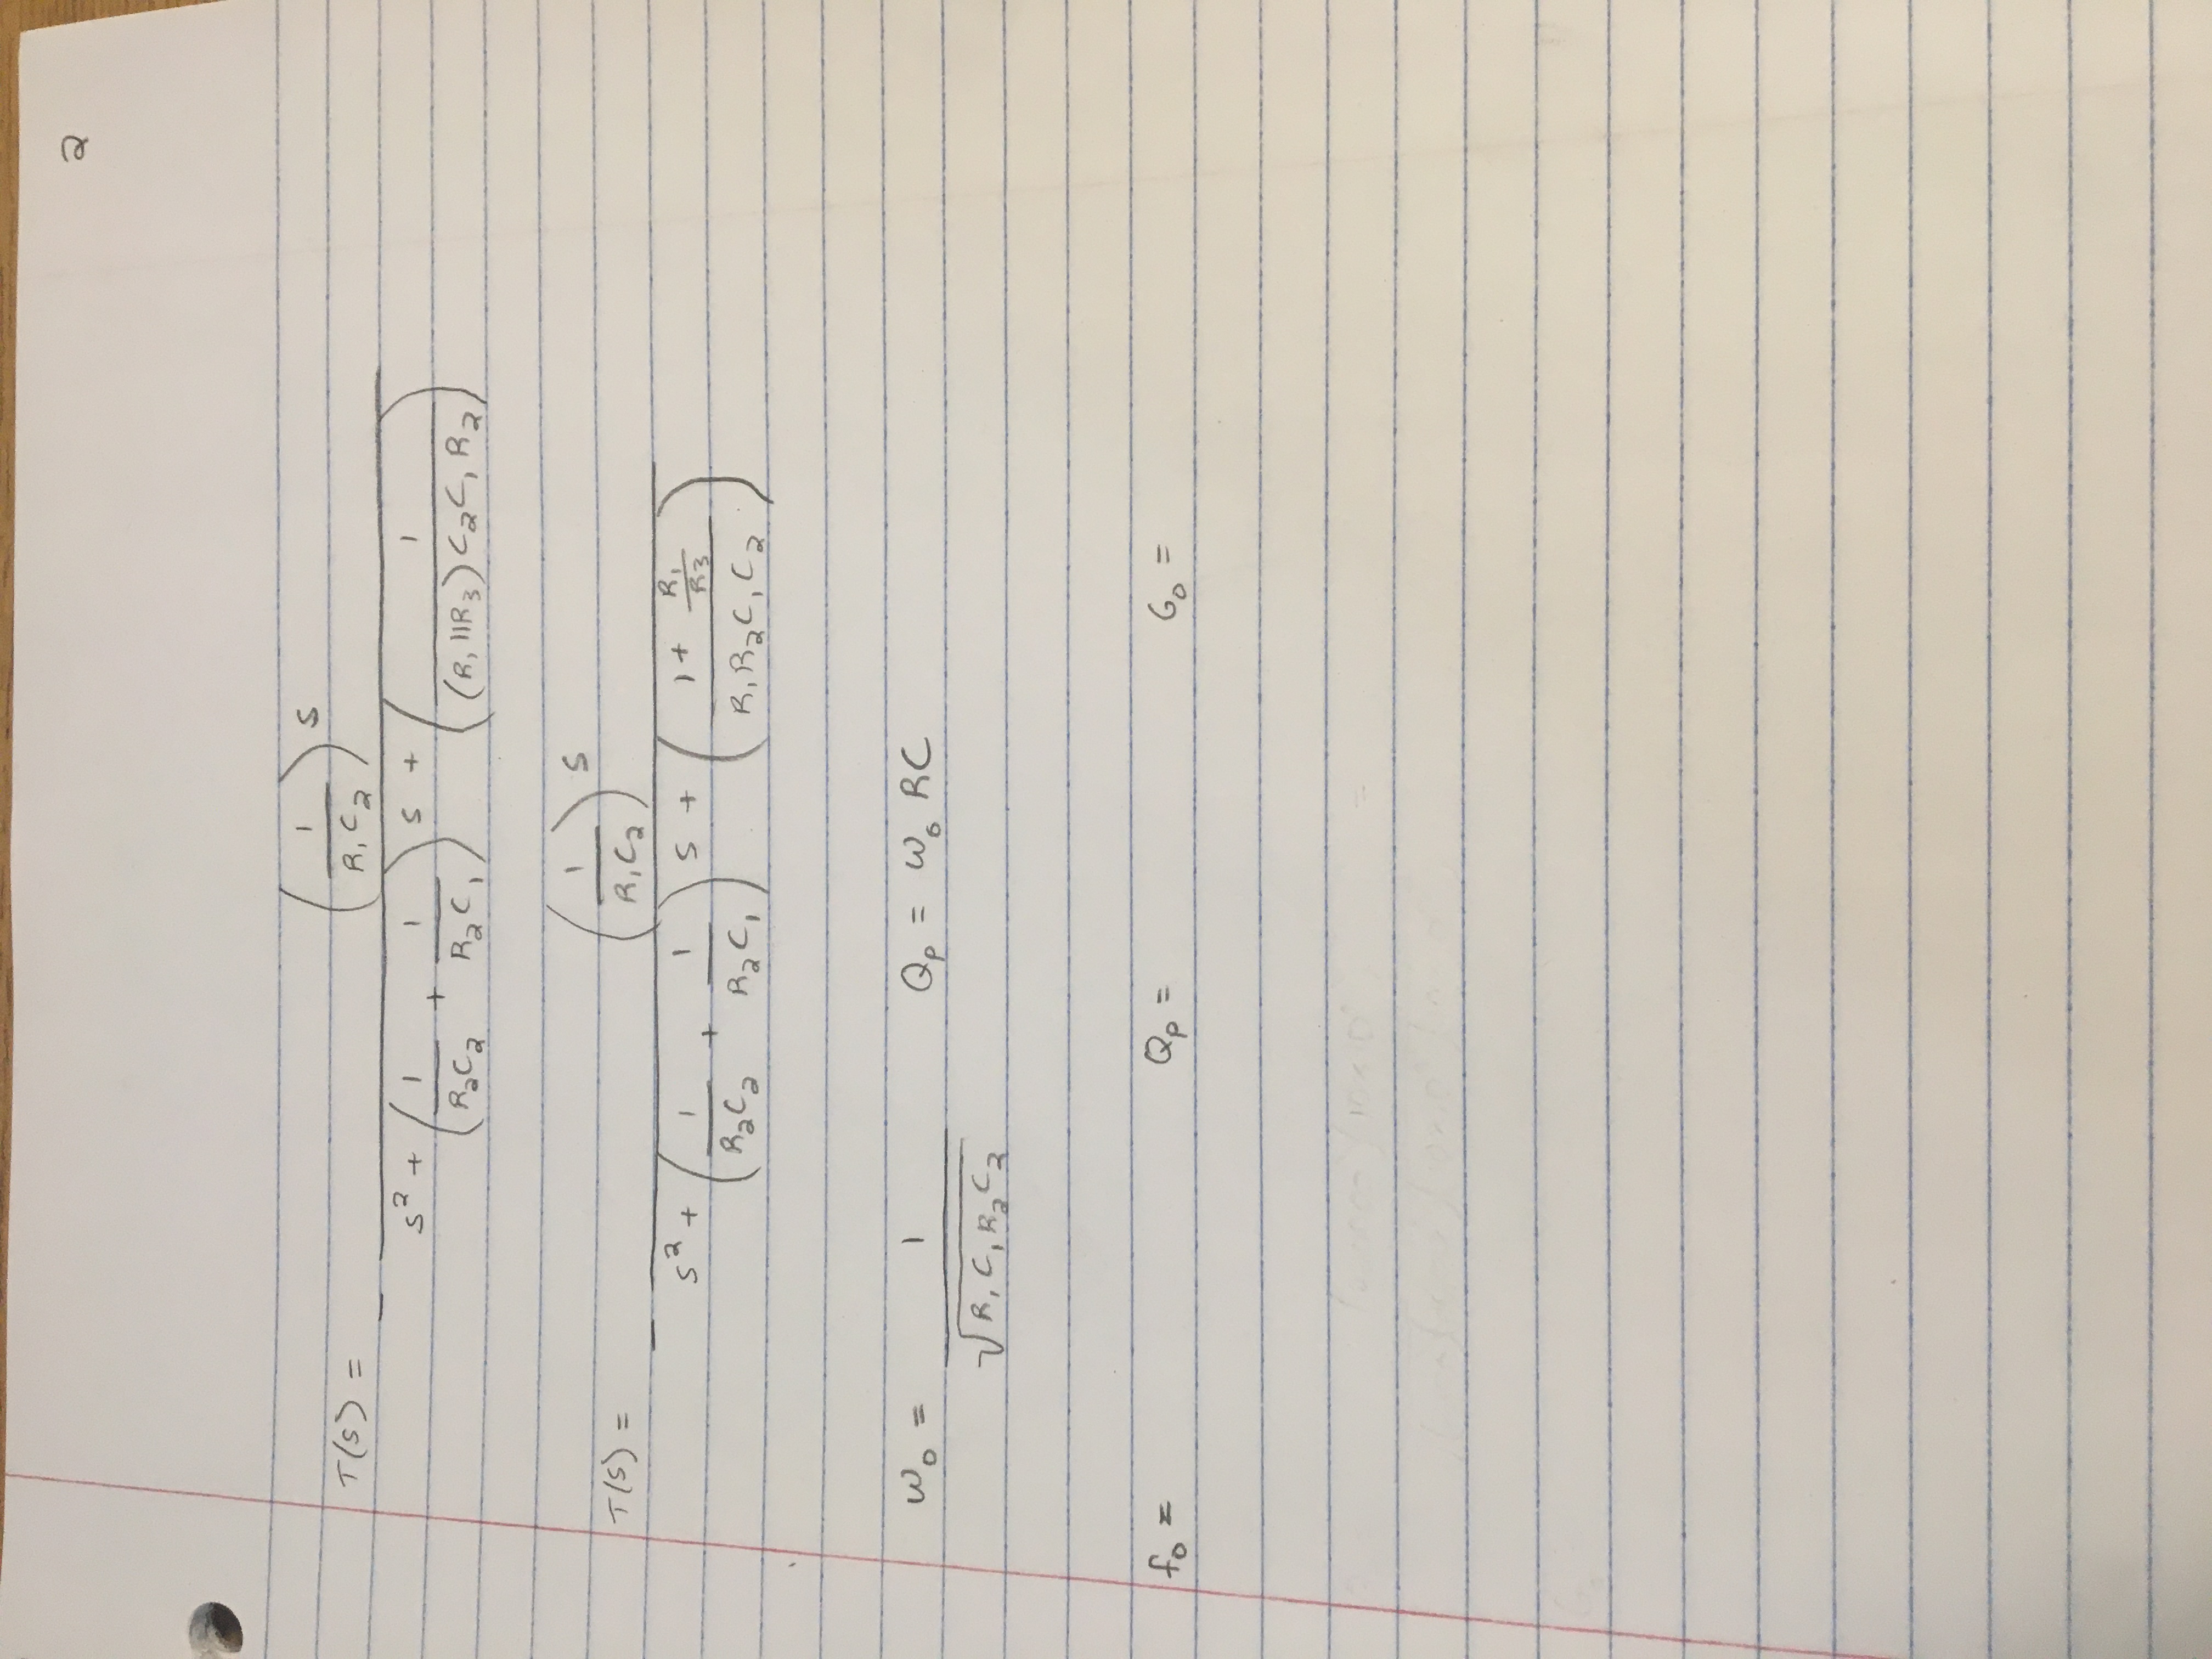 2
T(s) = (1/(R₁C₂)) s / (s² + (1/(R₂C₂) + 1/(R₂C₁)) s + (1/((R₁||R₃) C₂C₁R₂)))
T(s) = (1/(R₁C₂)) s / (s² + (1/(R₂C₂) + 1/(R₂C₁)) s + ((1 + R₁/R3)/(R₁R₂C₁C₂)))
ω₀ = 1/√(R₁C₁R₂C₂) Qₚ = ω₀ RC
f₀ = Qₚ = G₀ =